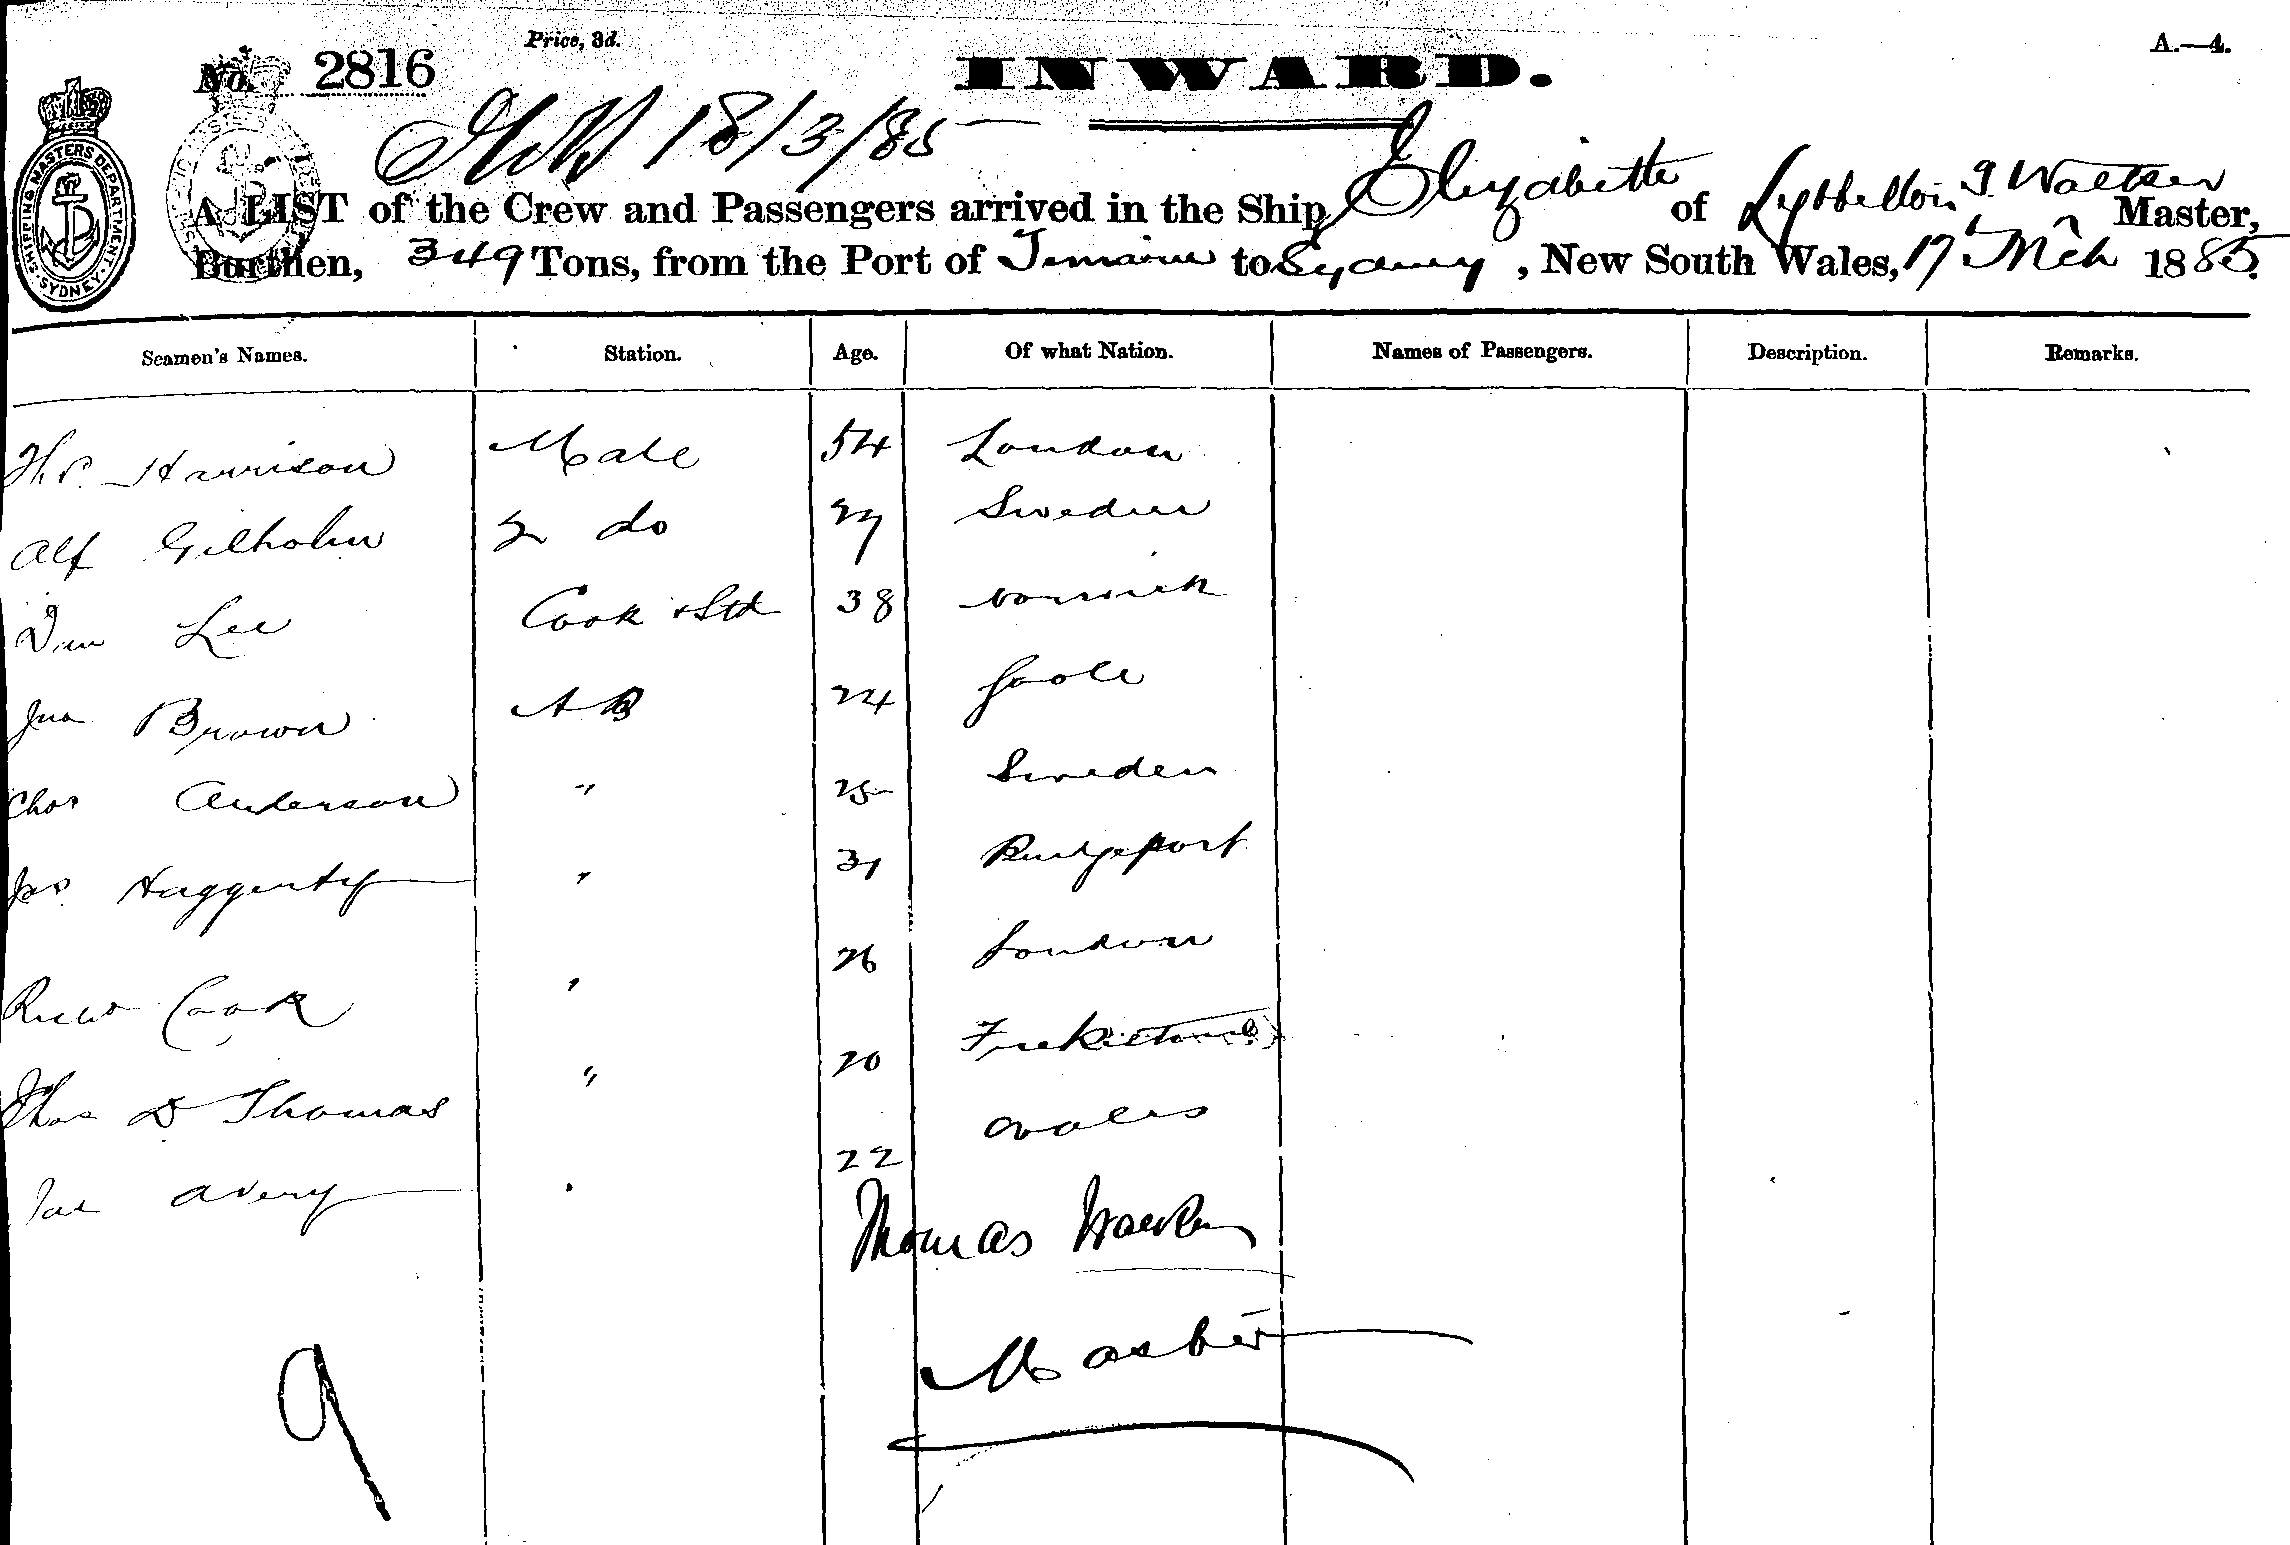 Price, 3d.
A.—4.
No. 2816
INWARD.
18/3/85
A LIST of the Crew and Passengers arrived in the Ship Elizabeth of Lyttelton T. Walker Master,
Burthen, 349 Tons, from the Port of to Sydney, New South Wales, 17 Mch 1885.
SHIPPING MASTERS DEPARTMENT SYDNEY
Seamen's Names. Station. Age. Of what Nation. Names of Passengers. Description. Remarks.
Harrison Mate 54 London
Alf Gilholm 2 do 27 Sweden
Lee Cook & Std 38
Jno Brown A B 24 Goole
Chas Anderson " 25 Sweden
Jas Haggerty " 31
Cook " 26 London
Thos D Thomas " 20
Avery " 22 Wales
Thomas Walker
Master
9